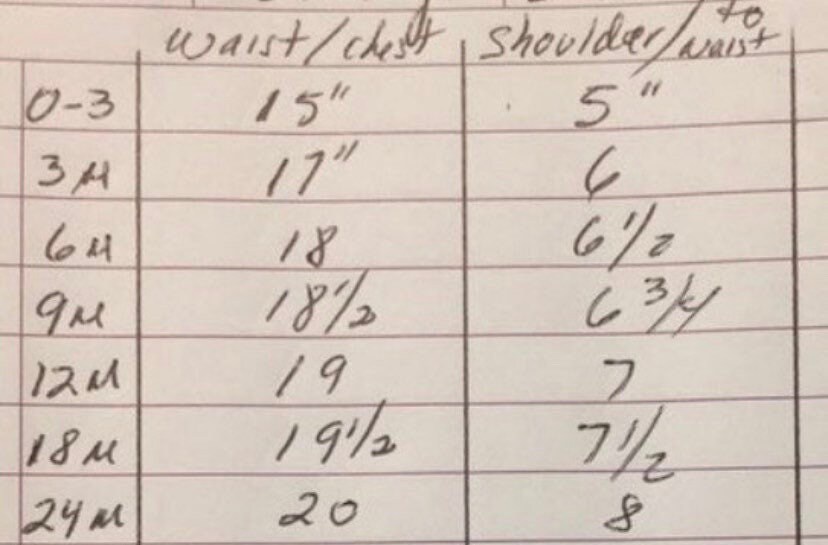 waist/chest shoulder/to waist
0-3 15" 5"
3M 17" 6
6M 18 6 1/2
9M 18 1/2 6 3/4
12M 19 7
18M 19 1/2 7 1/2
24M 20 8